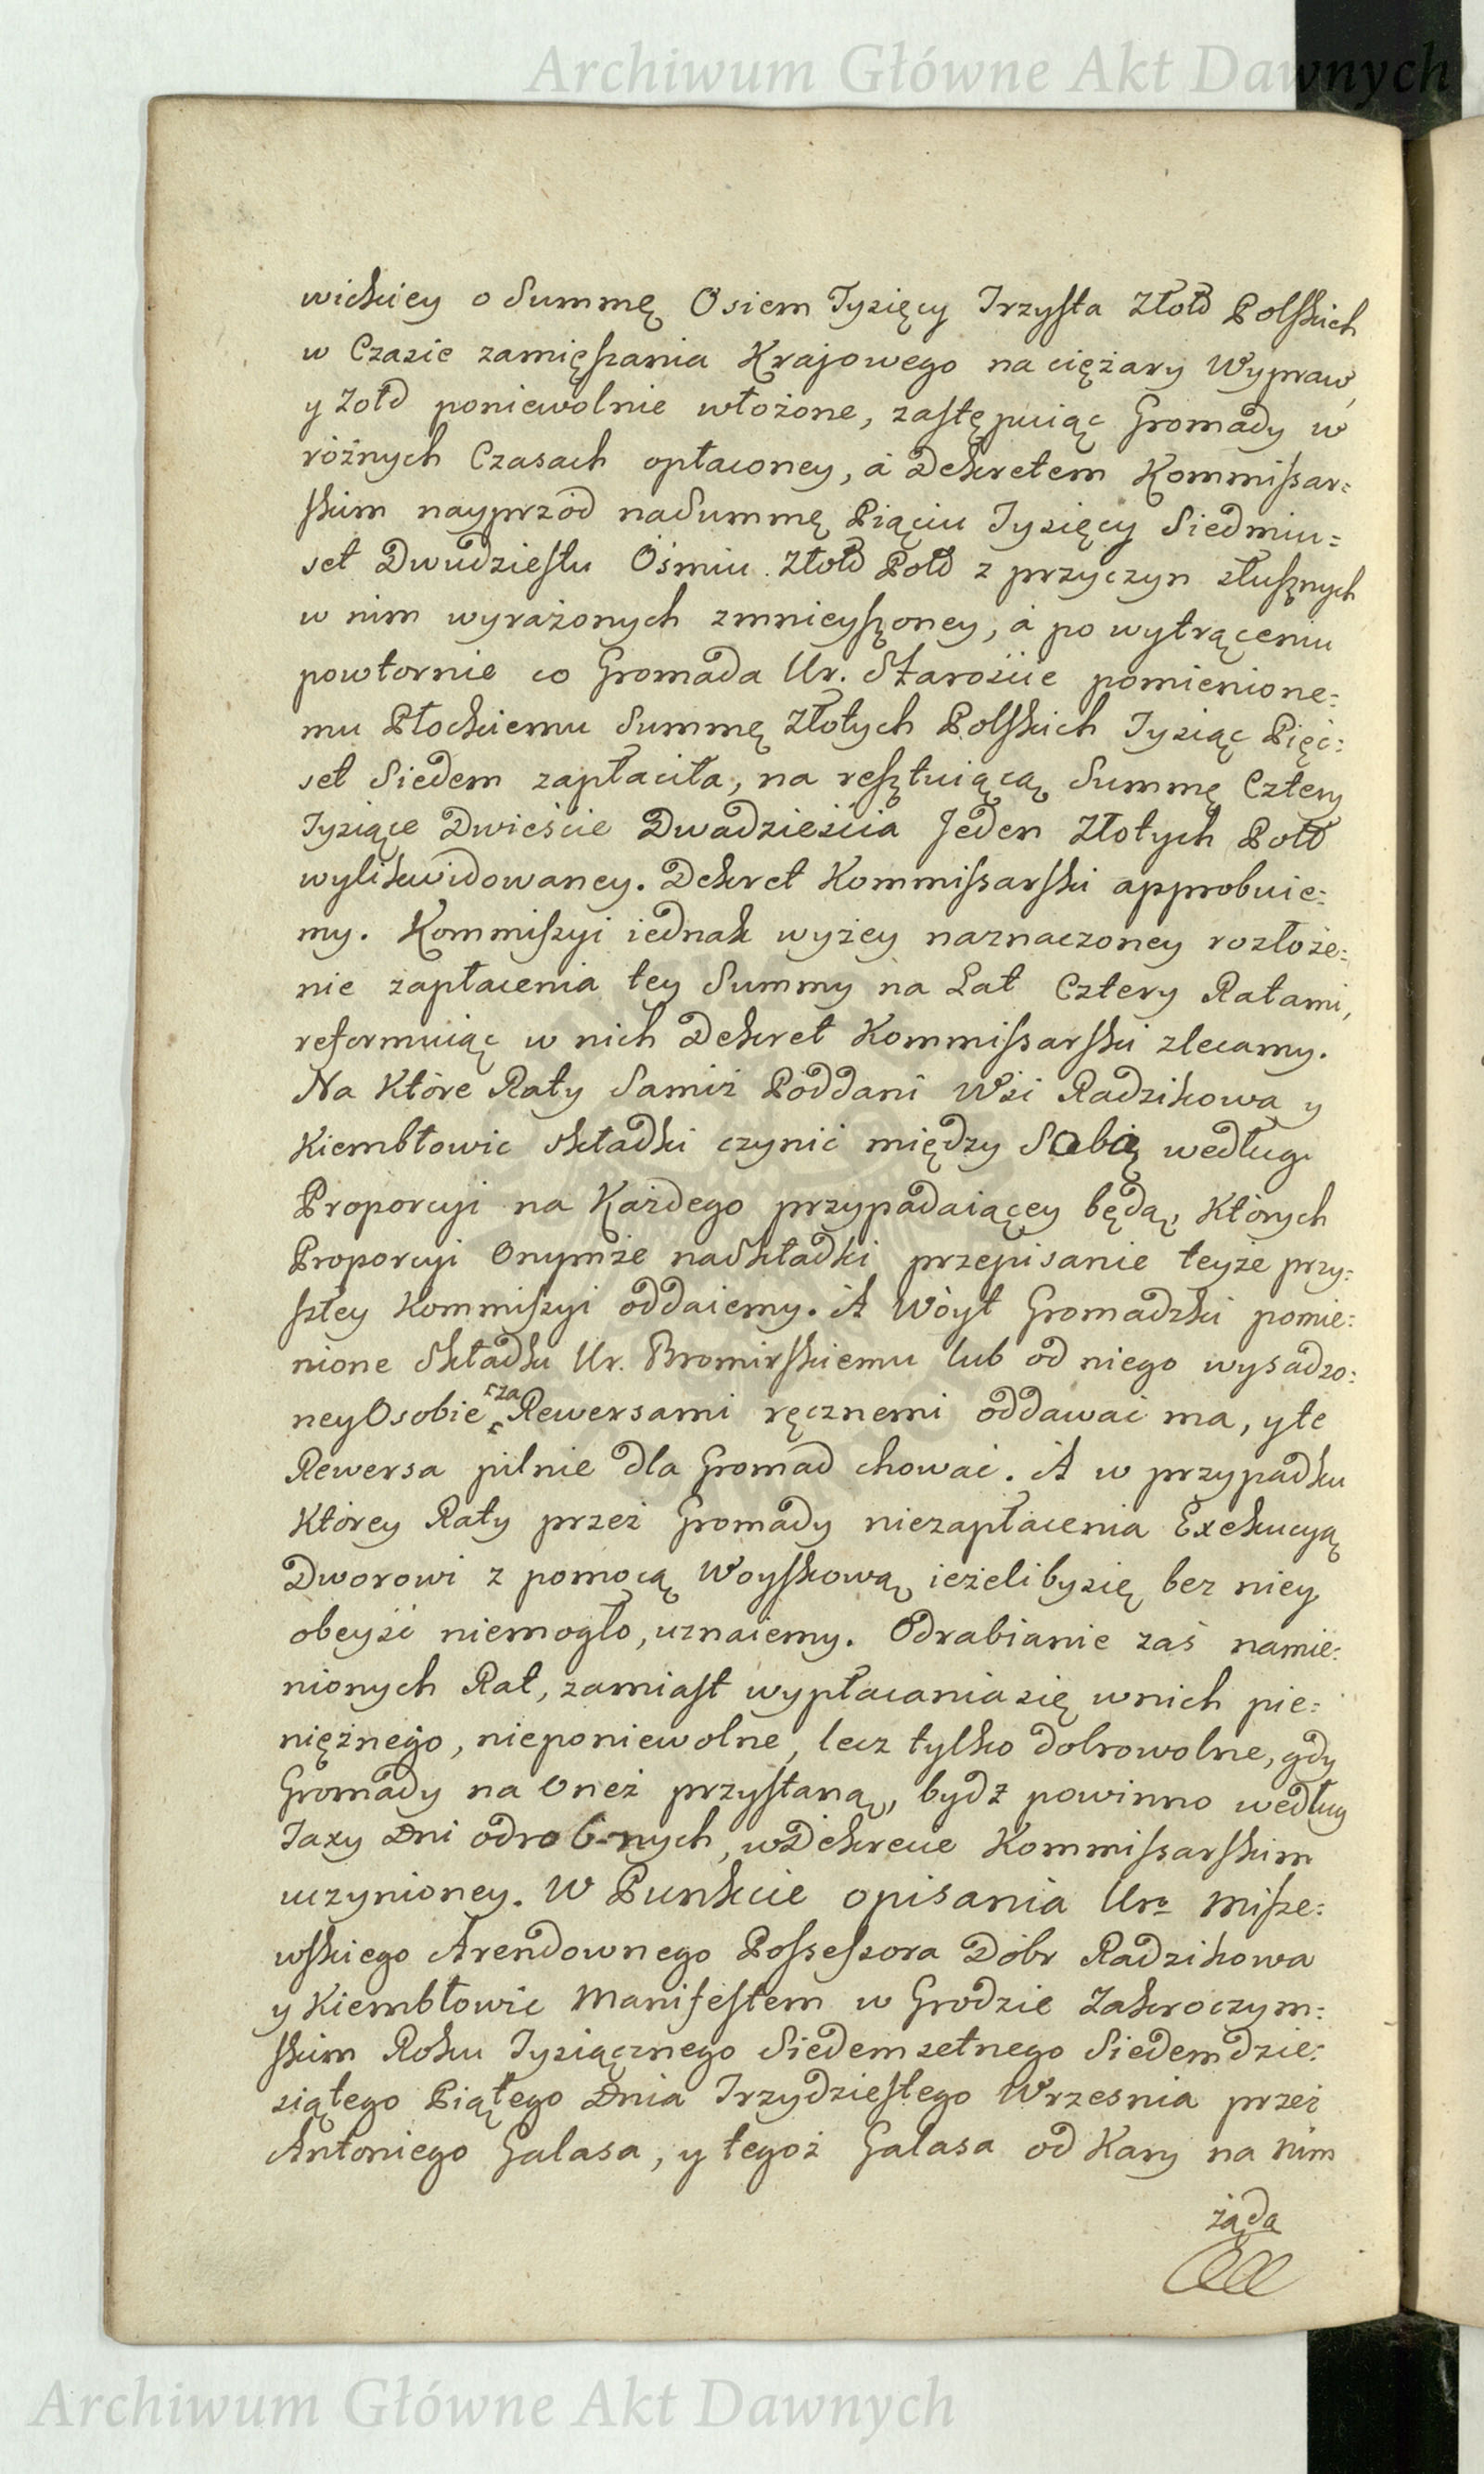 Archiwum Główne Akt Dawnych
wickiey o Summę Osiem Tysięcy Trzysta Złotd Polskich
w Czasie zamięszania Krajowego na ciężary Wypraw,
y Zołd poniewolnie włożone, zastępuiąc Gromady w
różnych Czasach opłaconey, á Dekretem Kommissar=
skim nayprzód naSummę Piąciu Tysięcy Siedmiu=
set Dwudziestu Ośmiu Złotd Pold z przyczyn słusznych
w nim wyrażonych zmnieyszoney, á po wytrąceniu
powtornie co Gromada Ur. Staroście pomienione=
mu Płockiemu Summę Złotych Polskich Tysiąc Pięć=
set Siedem zapłaciła, na resztuiącą Summę Cztery
Tysiące Dwieście Dwadzieścia Jeden Złotych Pold
wylikwidowaney. Dekret Kommissarski approbuie=
my. Kommiszyi iednak wyżey naznaczoney rozłoże=
nie zapłacenia tey Summy na Lat Cztery Ratami,
reformuiąc w nich Dekret Kommissarski zlecamy.
Na Które Raty Samiż Poddani Wsi Radzikowa y
Kiembłowic składki czynić między Sobą według
Proporcyi na Każdego przypadaiącey będą, Których
Proporcyi Onymże naSkładki przepisanie teyże przy=
szłey Kommiszyi oddaiemy. A Wóyt Gromadzki pomie=
nione Składki Ur. Bromirskiemu lub od niego wysadzo=
neyOsobie za Rewersami ręcznemi oddawać ma, yte
Rewersa pilnie dla Gromad chować. A w przypadku
Którey Raty przez Gromady niezapłacenia Exekucyą
Dworowi z pomocą Woyskową ieżelibysię bez niey
obeyść niemogło, uznaiemy. Odrabianie zaś namie=
nionych Rat, zamiast wypłacaniasię wnich pie=
niężnego, nieponiewolne, lecz tylko dobrowolne, gdy
Gromady na Oneż przystaną, bydź powinno według
Taxy Dni odrobnych, wDekrecie Kommissarskim
uczynioney. W Punkcie opisania Uro Misze=
wskiego Arendownego Possessora Dóbr Radzikowa
y Kiembłowic Manifestem w Grodzie Zakroczym=
skim Roku Tysiącznego Siedemsetnego Siedemdzie=
siątego Piątego Dnia Trzydziestego Wrzesnia przez
Antoniego Galasa, y tegoż Galasa od Kary na nim
żąda
Archiwum Główne Akt Dawnych